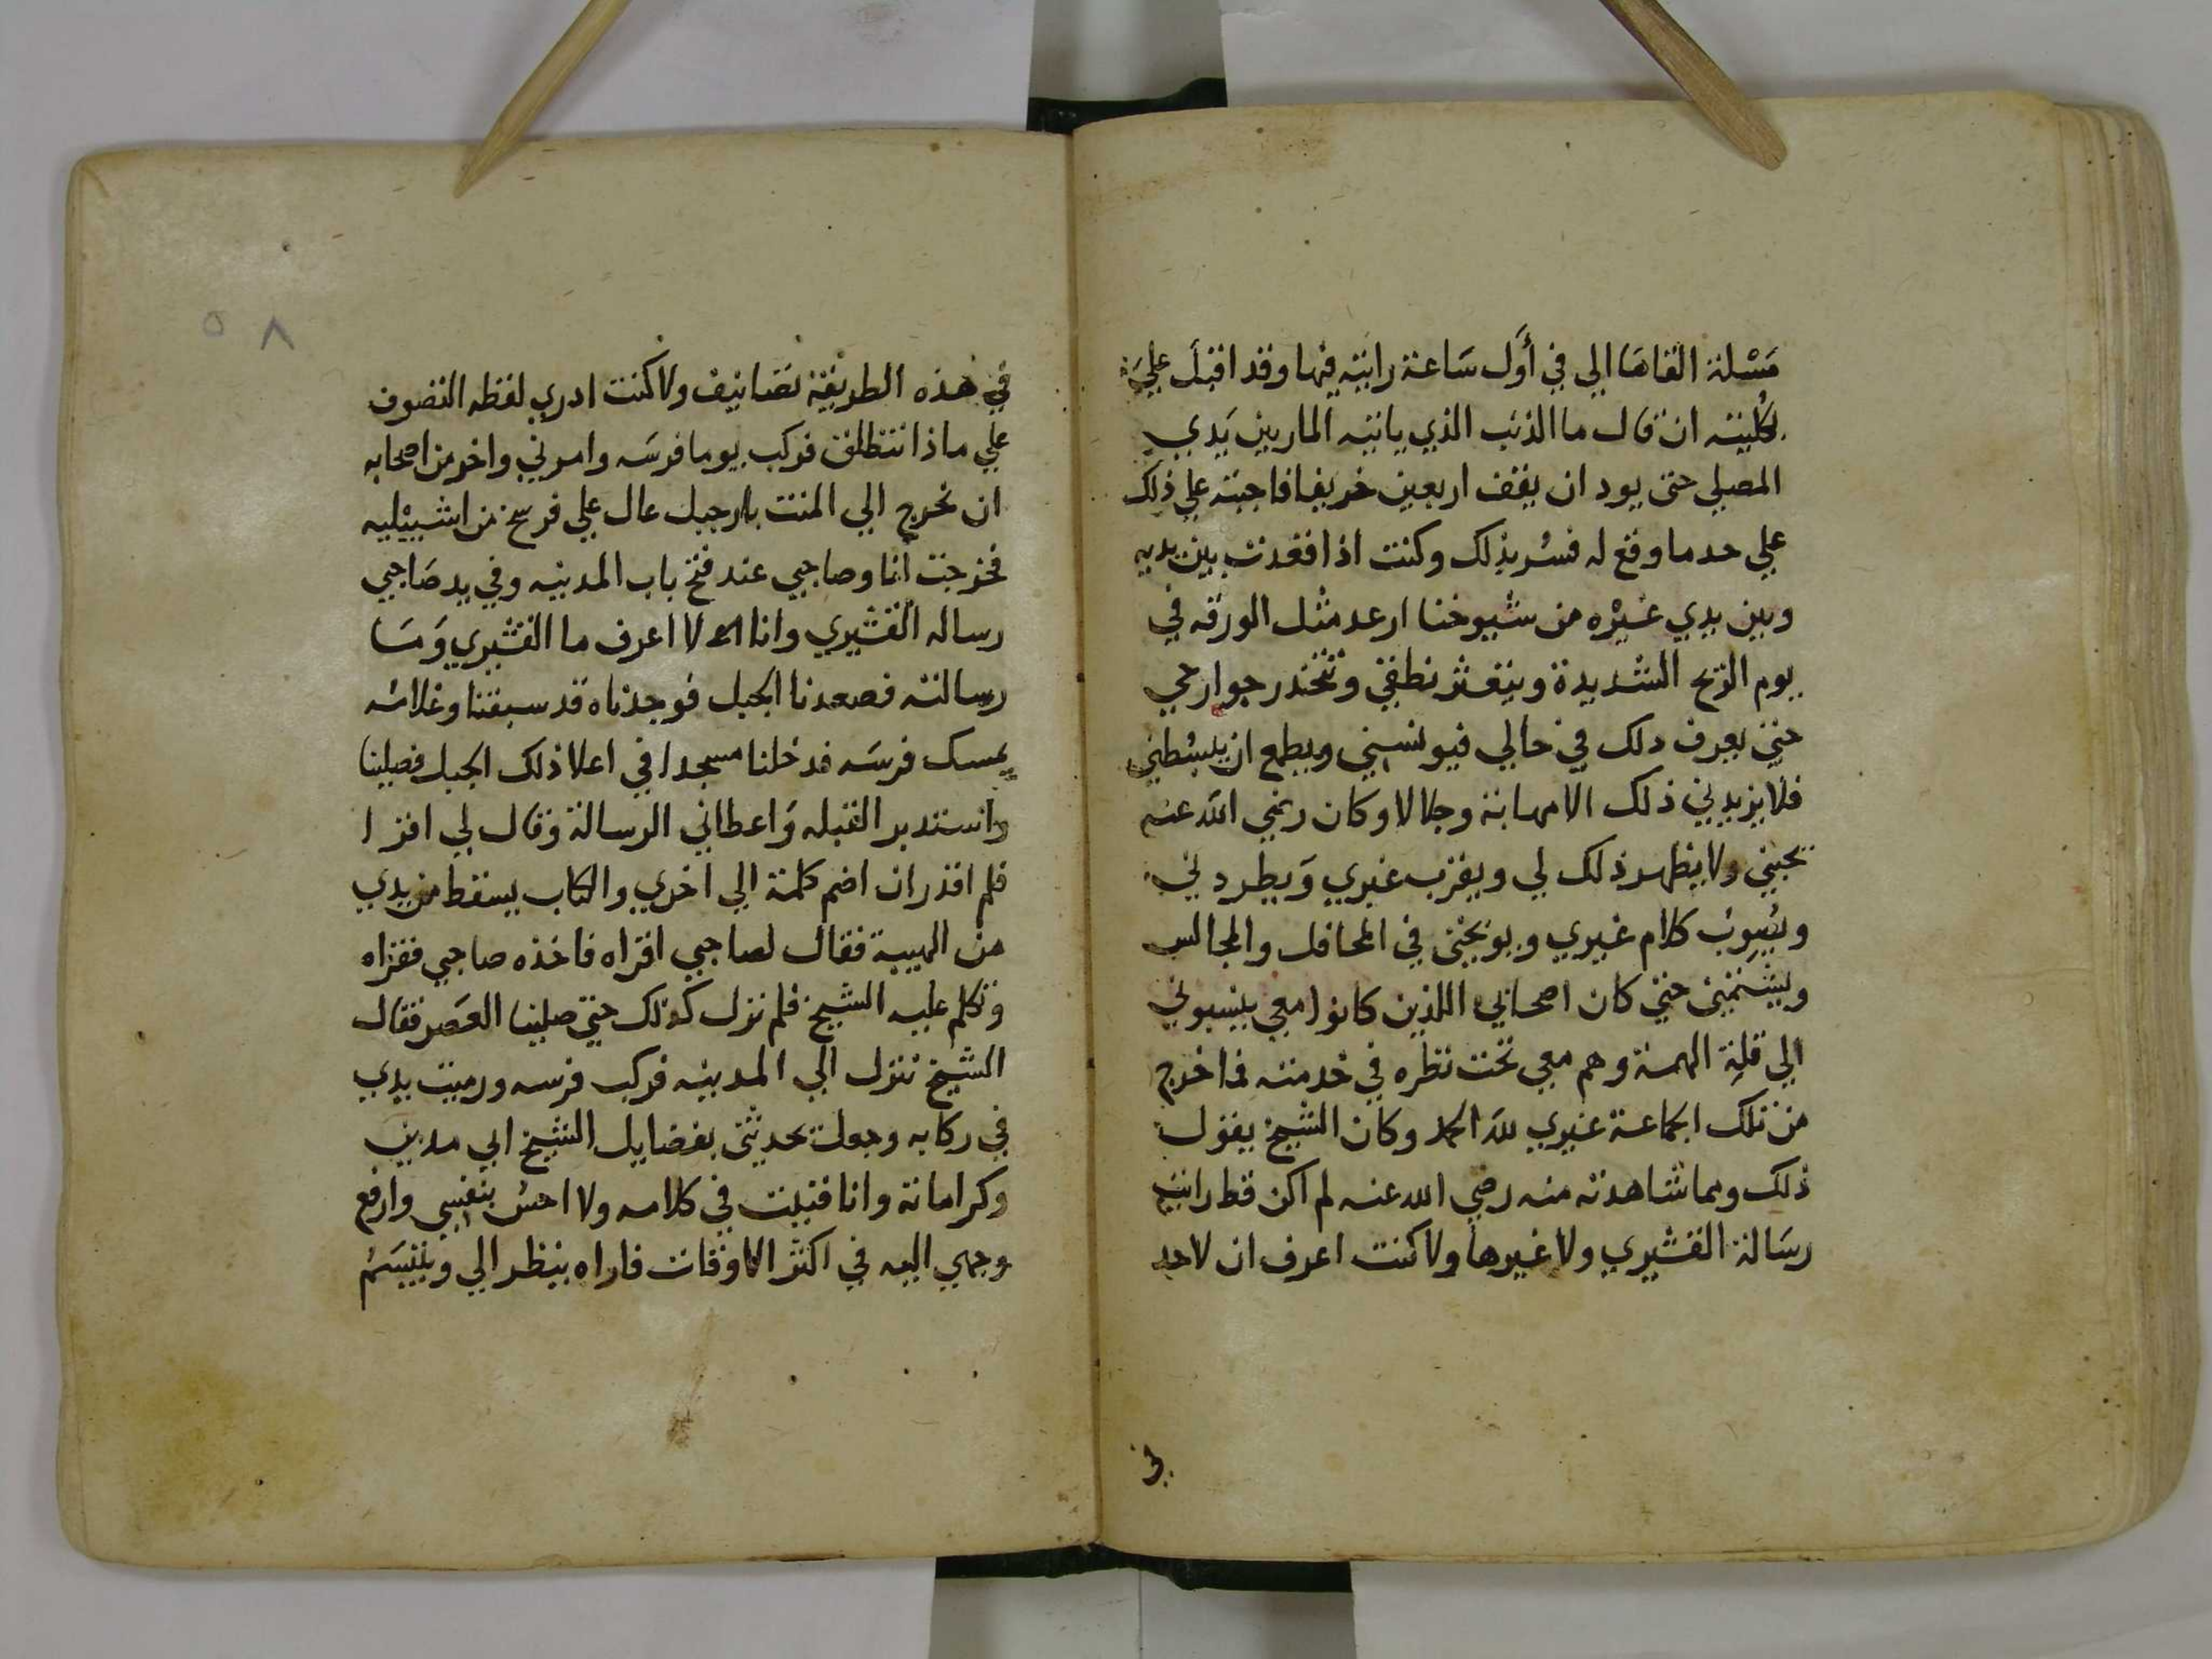 مَسْلة القاهَا الي في أوَّل سَاعة رايته فيها وقد اقبل عليَّ
بكُليته ان قال ما الذنب الذي ياتيه المار بين يَدي
المصلي حتى يود ان يقف اربعين خريفا فاجبته علي ذلك
علي حد ما وقع له فسُر بذلك وكنت اذا قعدت بين يديه
وبين يدي غيْره من شيوخنا ارعد مثل الورقه في
يوم الريح الشديدة ويتغير نطقي وتتخدر جوارحي
حتى يعرف ذلك في حالي فيونسني ويطمع ان يبسُطني
فلا يزيدني ذلك الا مهابة وجلالا وكان رضي الله عنه
يحبني ولا يظهر ذلك لي ويقرب غيري وَيطردني
ويُصوبُ كلام غيري ويوبخني في المحافل والمجالس
ويشتمني حتى كان اصحابي اللذين كانوا معي ينسبوني
الي قلةِ الهمة وهم معي تحت نظره في خدمته فما خرج
من تلك الجماعة غيري لله الحمد وكان الشيخ يقول
ذلك ومما شاهدته منه رضي الله عنه لم اكن قط رايت
رسَالة القشيري ولا غيرها ولا كنت اعرف ان لاحد
في
٥٨
في هذه الطريقة تصانيف ولا كنت ادري لفظه التصوف
علي ماذا تنطلق فركب يوما فرسَه وامرني واخر من اصحابه
ان نخرج الي المنت بار جبل عال علي فرسخ من اشبيْليه
فخرجت أنا وصاحبي عند فتح باب المدينه وفي يد صَاحبي
رساله القشيري وانا لا اعرف ما القشيري وَمَا
رسالته فصعدنا الجبل فوجدناه قد سبقنا وغلامُه
يمسك فرسَه فدخلنا مسجدا في اعلا ذلك الجبل فصلينا
واستدبر القبله وَاعطاني الرسالة وقال لي اقرا
فلم اقدر ان اضم كلمة الي اخري والكتاب يسقط من يدي
من الهيبة فقال لصاحبي اقراه فاخذه صاحبي فقراه
وتكلم عليه الشيخ فلم نزل كذلك حتى صلينا العصَر فقال
الشيخ ننزل الي المدينه فركب فرسه ورميت يدي
في ركابه وجعل يحدثني بفضايل الشيخ ابي مدين
وكراماته وانا فنيت في كلامه ولا احسُ بنفسي وارفع
وجهي اليه في اكثر الاوقات فاراه ينظر الي ويتبسَمُ